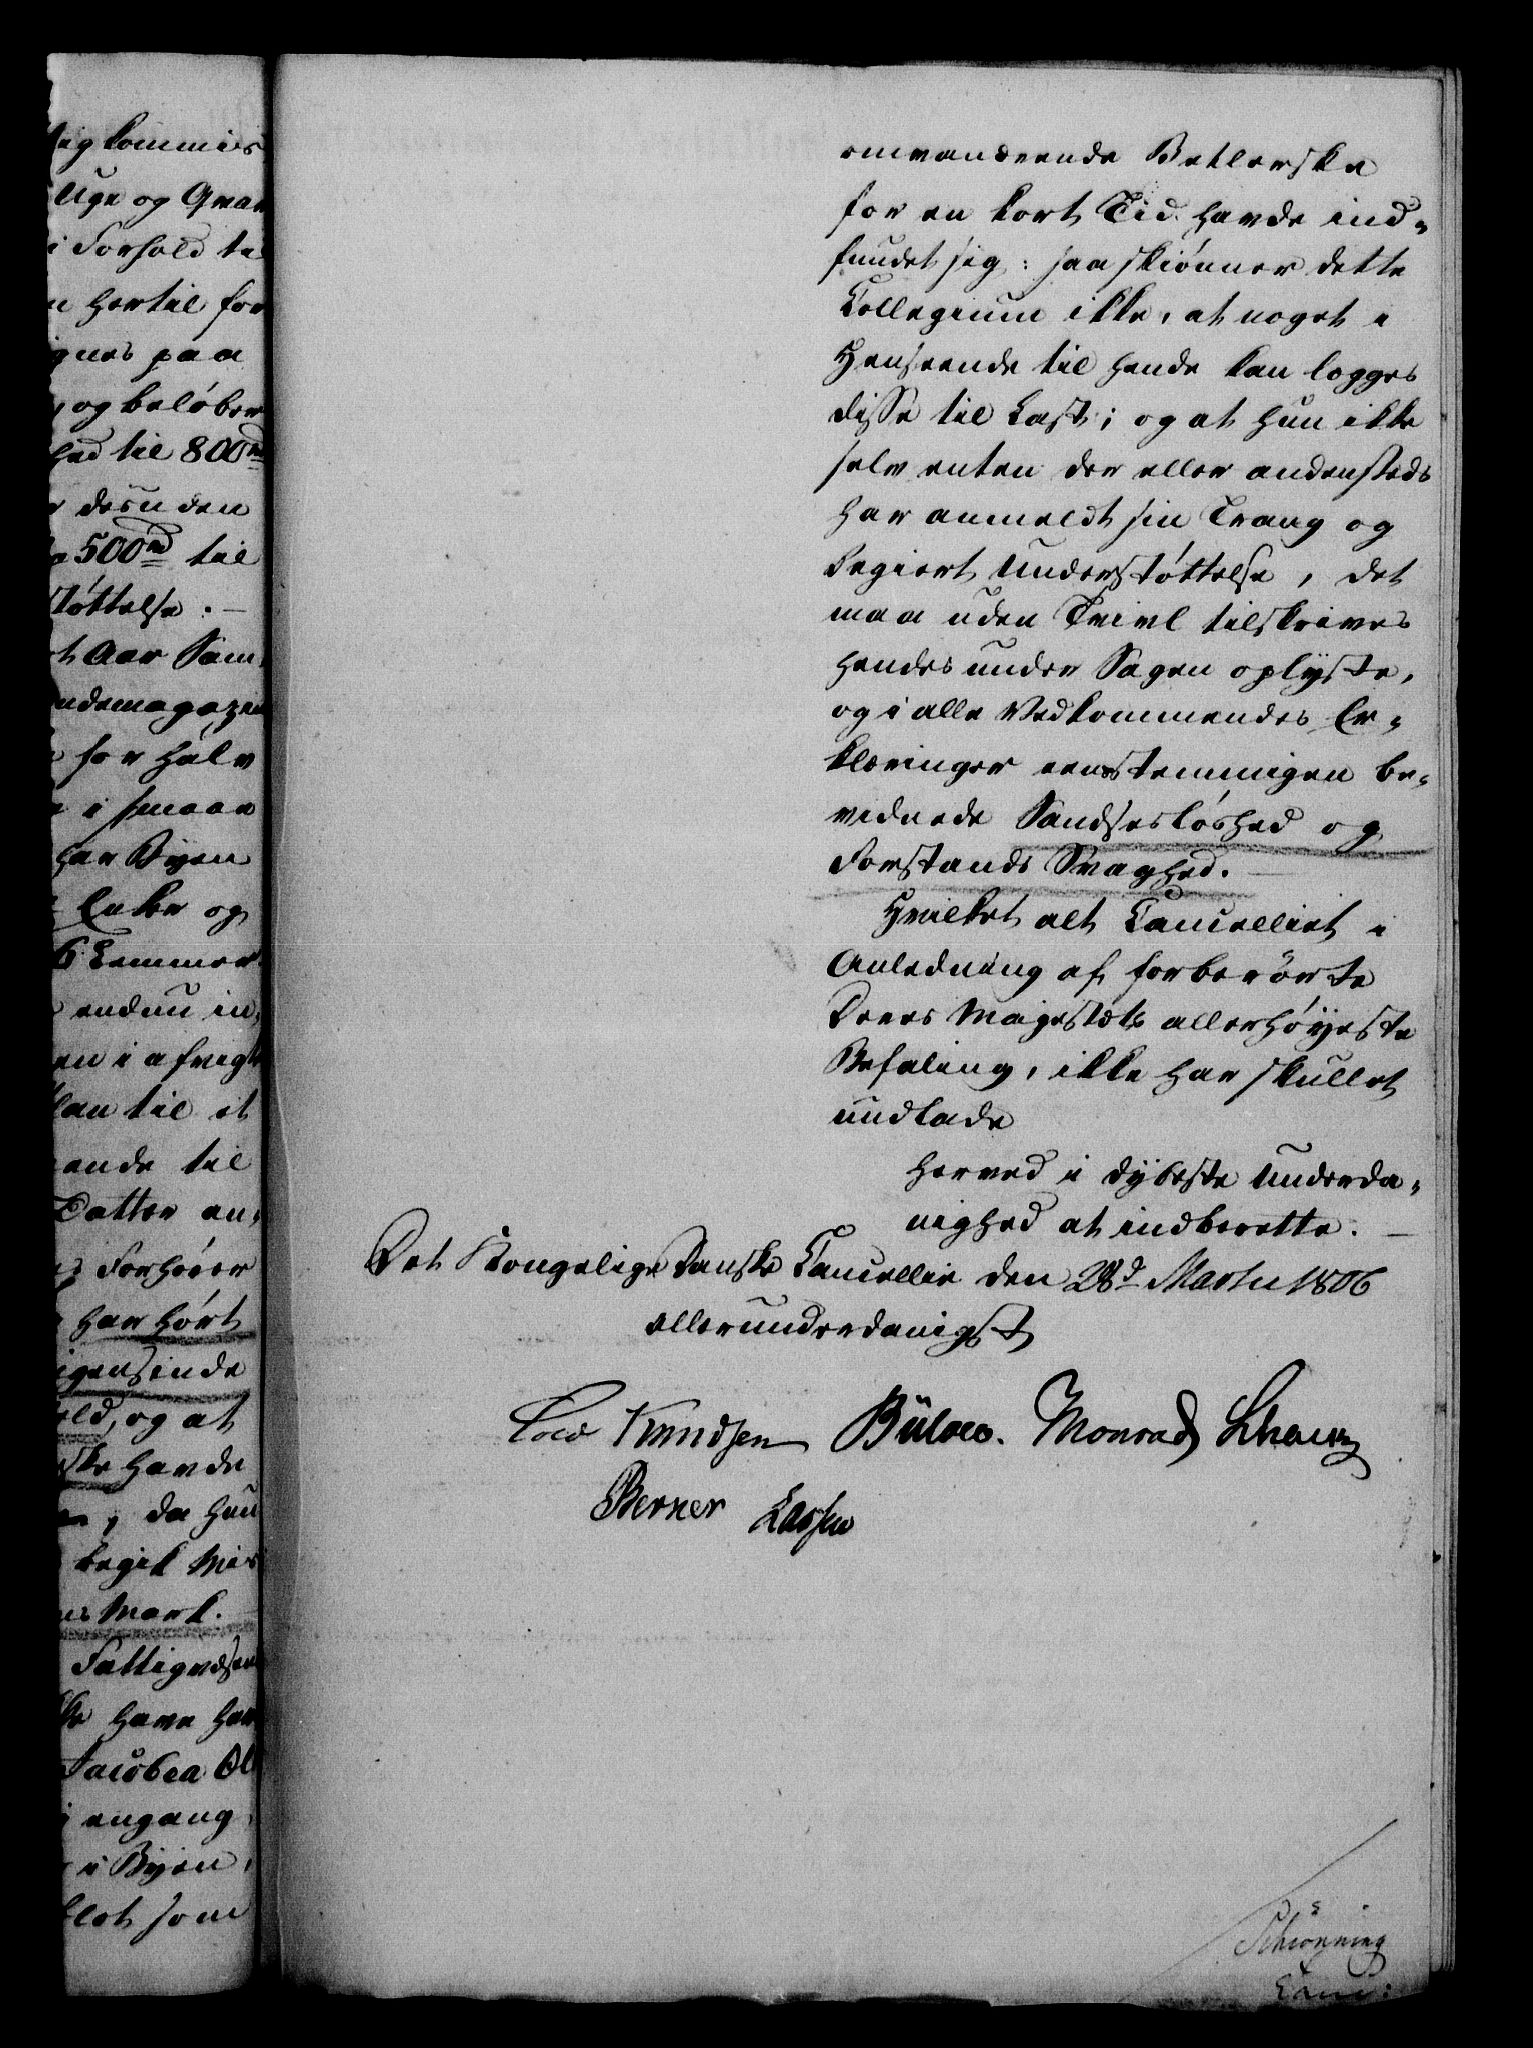 tig kommis
Uge og Qvar
i Forhold til
n hertil for
gnes paa
, og beløber
hed til 800 rd
r desuden
500 rd til
støttelse. —
t Aar Sam-
ndemagazin
for halv
i smaae
har Byen
Enker og
6 Lemmer
endnu in-
en i afvigte
lan til et
ende til
Datter an-
s Forhører
har hørt
igensinde
eld, og at
ske havde
; da hun
begik Mis
ns Mark.
Fattigvæsen
ke have hav
Jacobea Ol
engang
i Byen,
llet som
omvankende Betlerske
for en kort Tid havde ind-
fundet sig: saa skiønner dette
Collegium ikke, at noget i
Henseende til hende kan legges
disse til Last; og at hun ikke
selv enten der eller andensteds
har anmeldt sin Trang og
begiert Understøttelse, det
maa uden Tvivl tilskrives
hendes under Sagen oplyste,
og i alle Vedkommendes Er-
klæringer eenstemmigen be-
vidnede Sandsesløshed og
Forstands Svaghed. —
Hvilket alt Cancelliet i
Anledning af forberørte
Deres Majestæts allerhøyeste
Befaling, ikke har skullet
undlade
herved i dybeste Underda-
nighed at indberette. —
Det Kongelige Danske Cancellie den 28d Martii 1806
allerunderdanigst
Cold Knudsen Bülow. Monrad Schou
Berner Lassen
Schiønning